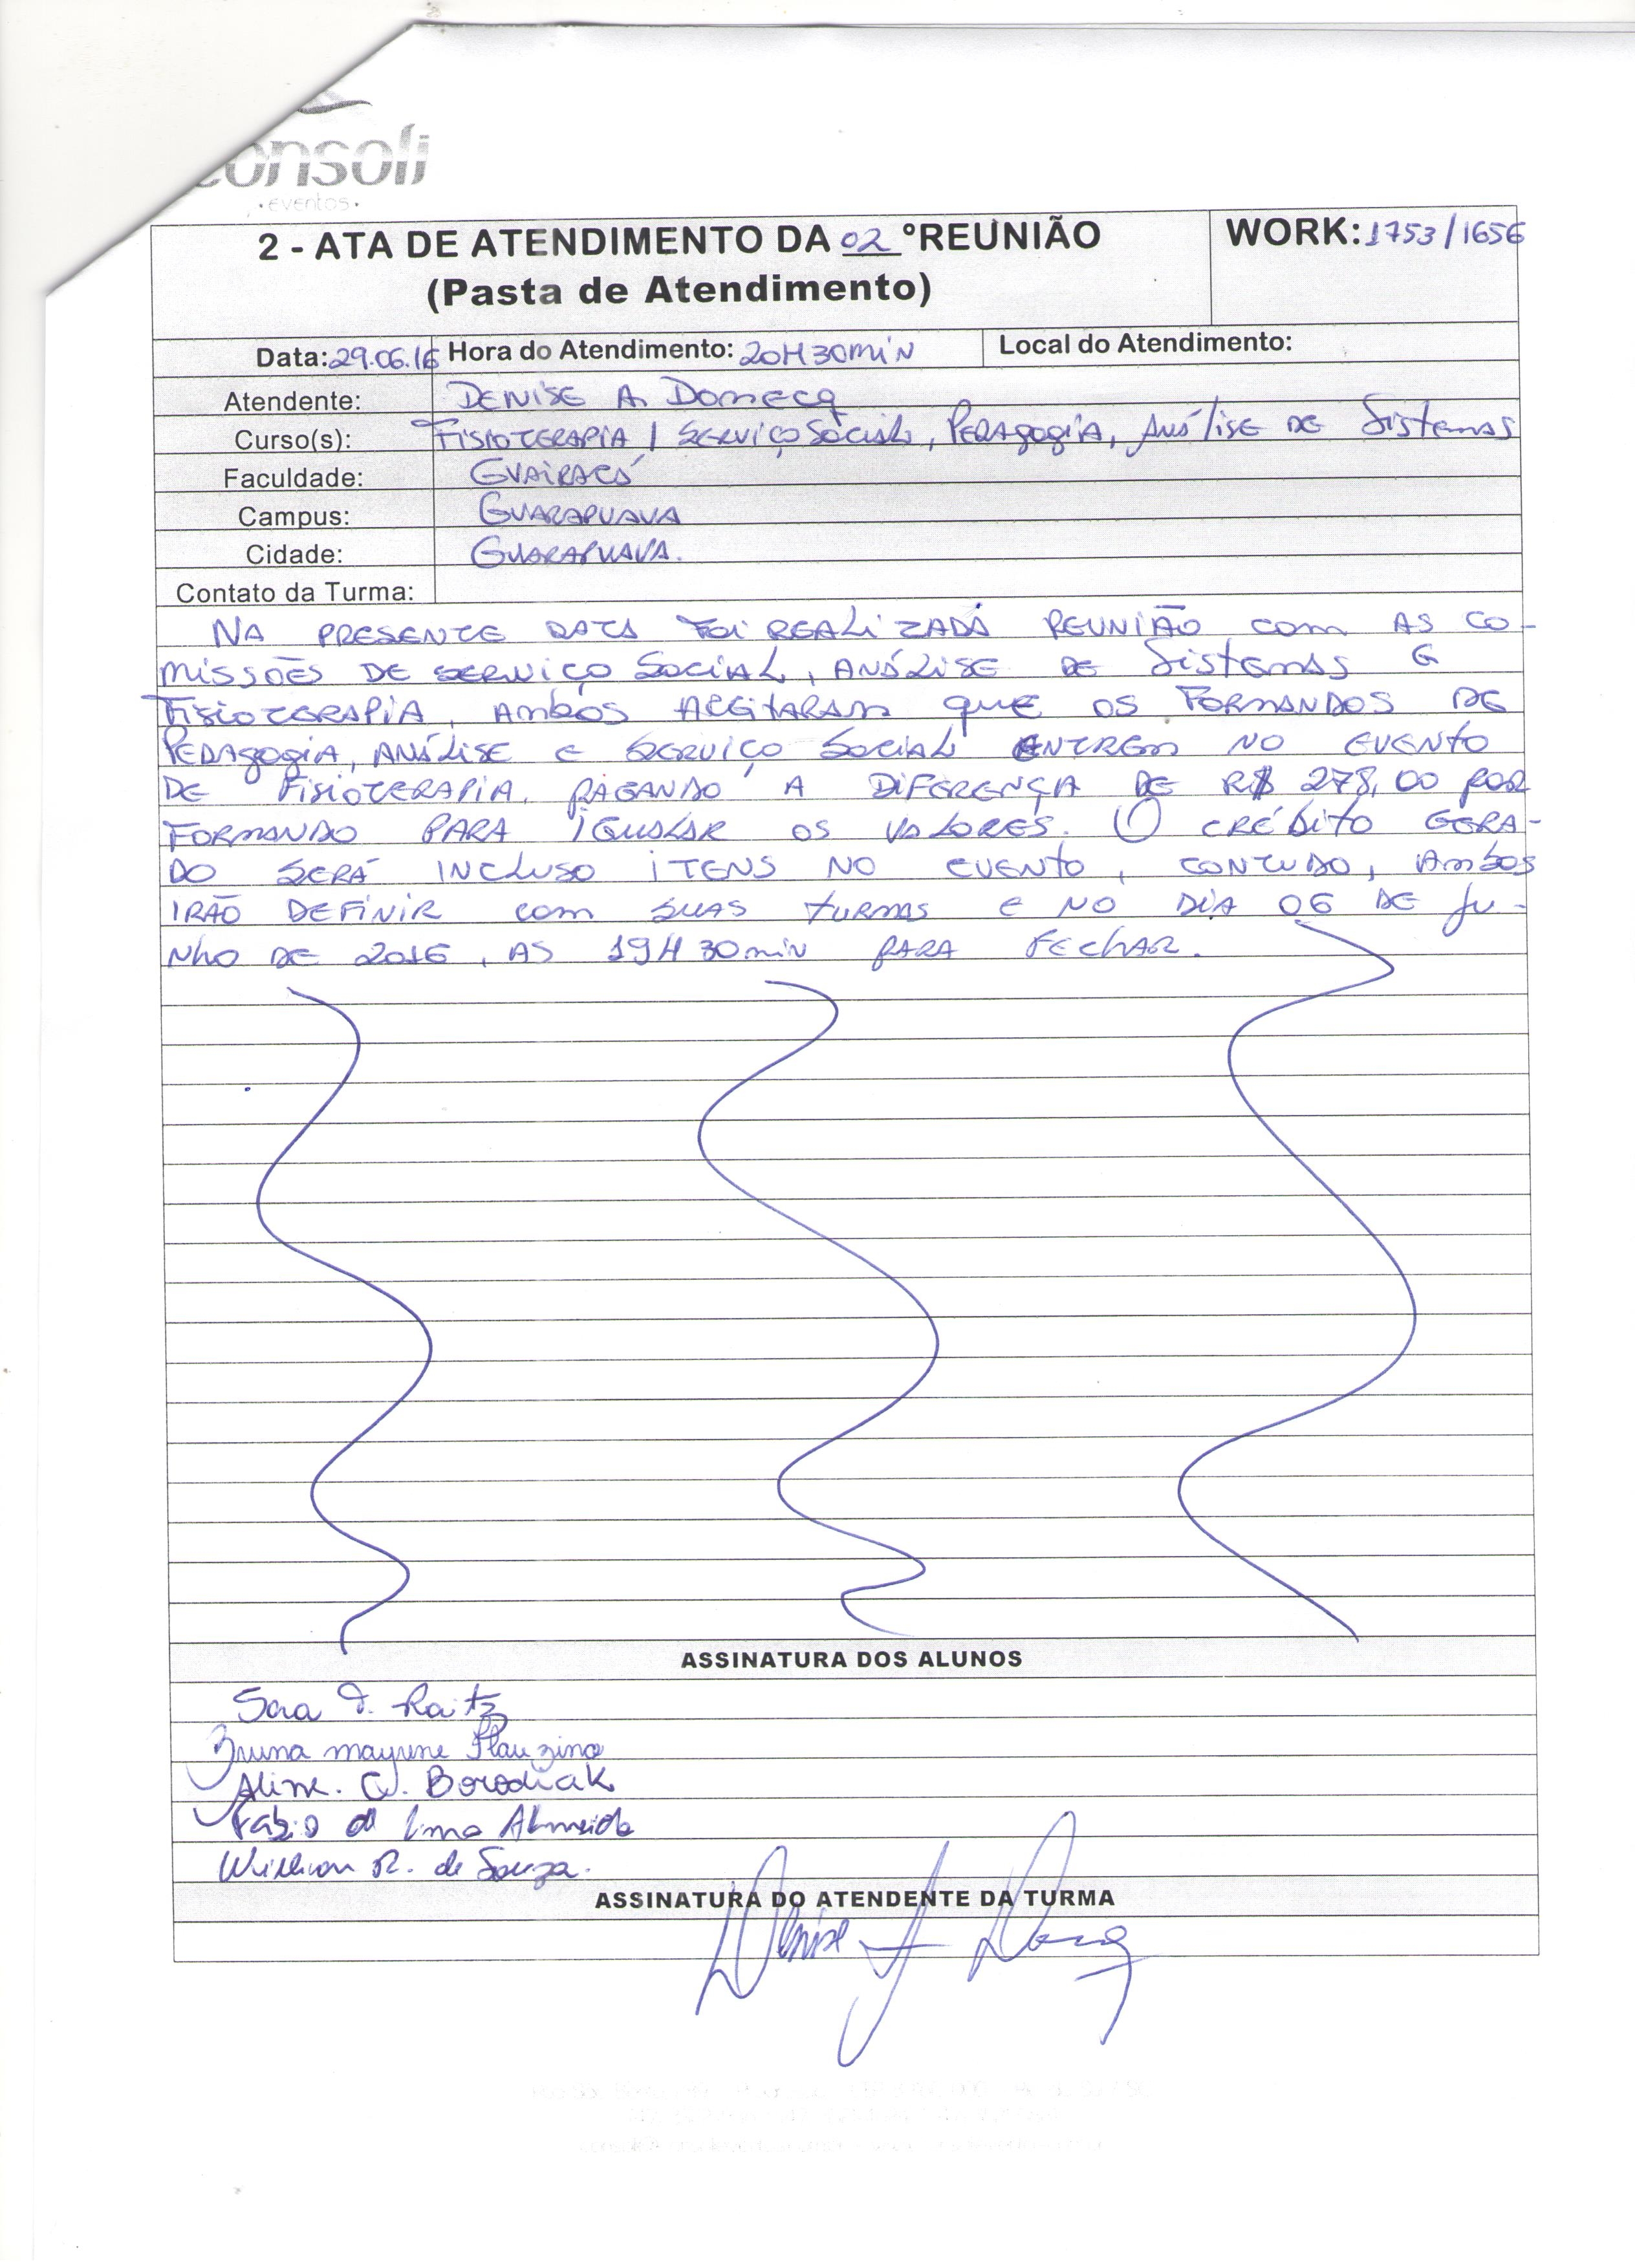 consoli
• eventos •
2 - ATA DE ATENDIMENTO DA 02 °REUNIÃO
(Pasta de Atendimento)
WORK: 1753/1656
Data: 29.06.16 Hora do Atendimento: 20H30miN Local do Atendimento:
Atendente: DENISE A. DomecQ
Curso(s): FISIOTERAPIA / SERVIÇO SOCIAL, PEDAGOGIA, ANÁLISE DE SISTEMAS
Faculdade: GUAIRACÁ
Campus: GUARAPUAVA
Cidade: GUARAPUAVA.
Contato da Turma:
NA PRESENTE DATA FOI REALIZADA REUNIÃO com AS CO-
MISSÕES DE SERVIÇO SOCIAL, ANÁLISE DE SISTEMAS E
FISIOTERAPIA, AMBOS ACEITARAM QUE OS FORMANDOS DE
PEDAGOGIA, ANÁLISE E SERVIÇO SOCIAL ENTREM NO EVENTO
DE FISIOTERAPIA, PAGANDO A DIFERENÇA DE R$ 278,00 POR
FORMANDO PARA IGUALAR OS VALORES. O CRÉDITO GERA-
DO SERÁ INCLUSO ITENS NO EVENTO, CONTUDO, AMBOS
IRÃO DEFINIR com SUAS TURMAS E NO DIA 06 DE JU-
NHO DE 2016, AS 19H30miN PARA FECHAR.
ASSINATURA DOS ALUNOS
Sara J. Raitz
Bruna mayrene Flauzino
Aline. C. Borodiak
Fabio de Lima Almeida
Willian R. de Souza.
ASSINATURA DO ATENDENTE DA TURMA
Denise A